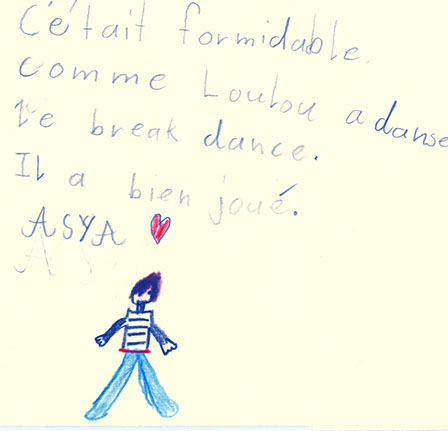 C'était formidable.
comme Loulou a danse
le break dance.
Il a bien joué.
ASYA
A